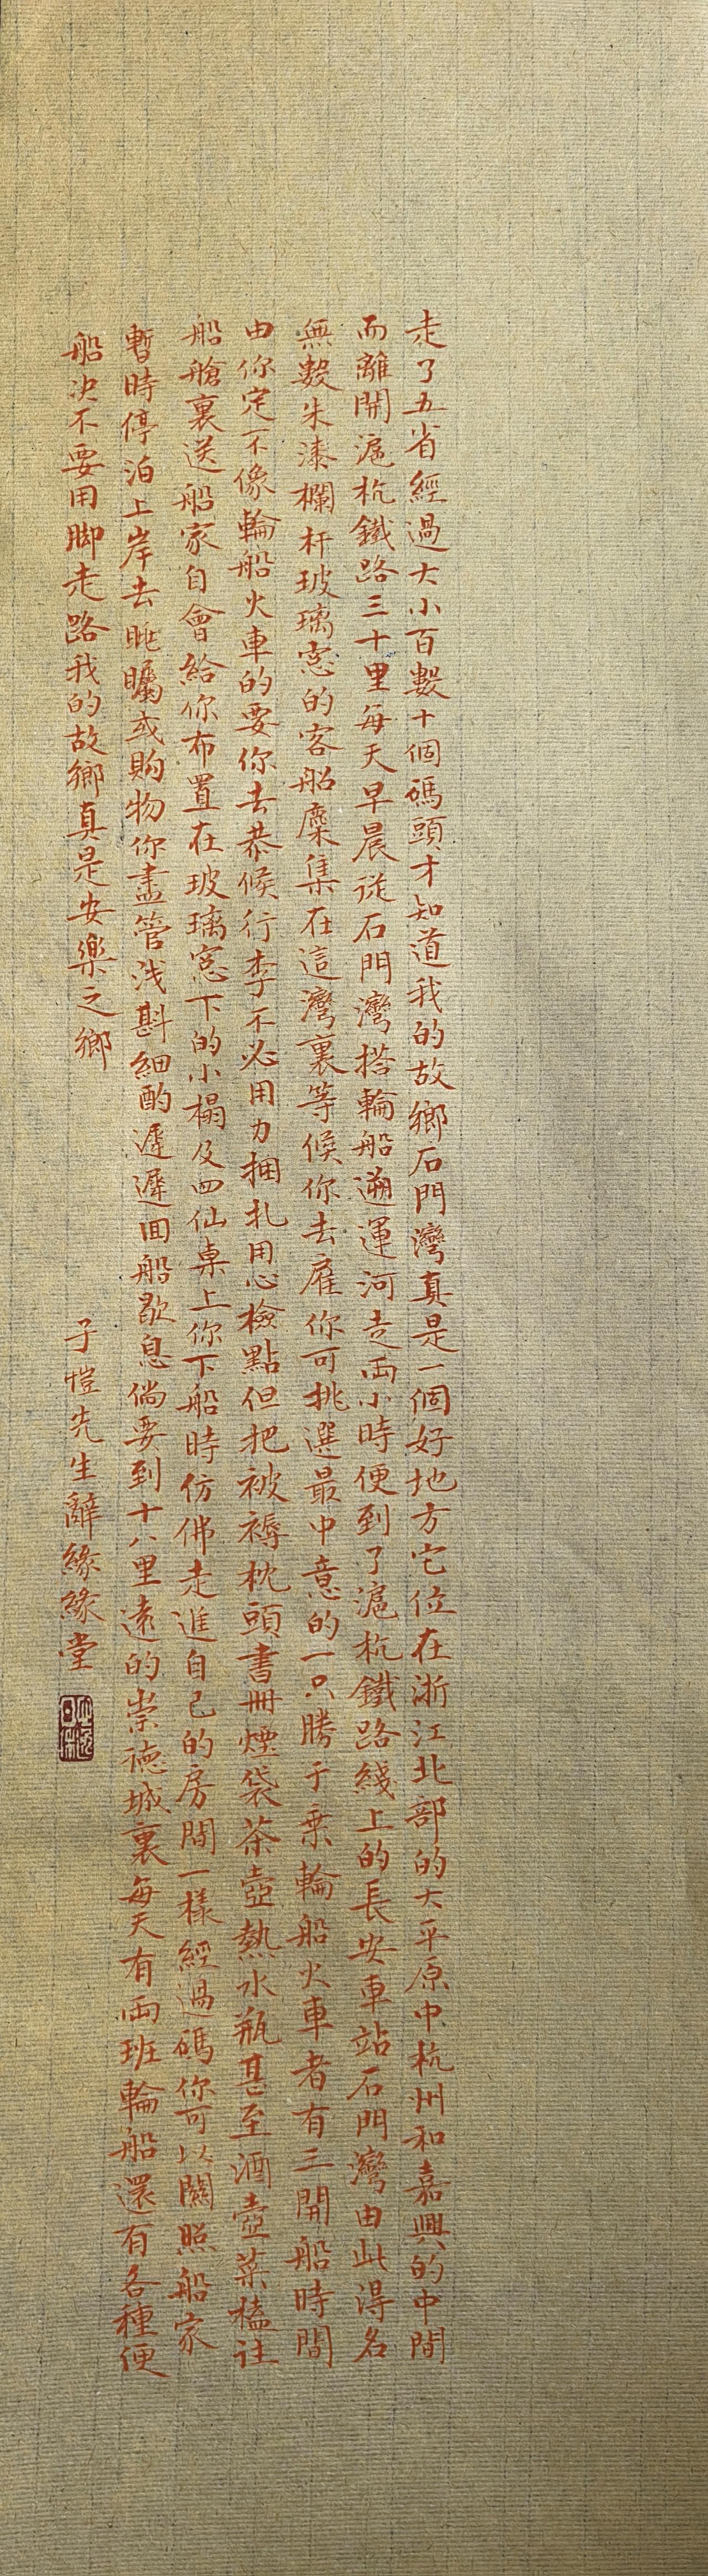 走了五省經過大小百數十個碼頭才知道我的故鄉石門灣真是一個好地方它位在浙江北部的大平原中杭州和嘉興的中間
而離開滬杭鐵路三十里每天早晨從石門灣搭輪船遡運河走兩小時便到了滬杭鐵路綫上的長安車站石門灣由此得名
無數朱漆欄杆玻璃窓的客船麇集在這灣裏等候你去雇你可挑選最中意的一只勝于乘輪船火車者有三開船時間
由你定不像輪船火車的要你去恭候行李不必用力捆扎用心檢點但把被褥枕頭書冊煙袋茶壺熱水瓶甚至酒壺菜榼往
船艙裏送船家自會給你布置在玻璃窓下的小榻及四仙桌上你下船時仿佛走進自己的房間一樣經過碼你可以關照船家
暫時停泊上岸去眺矚或購物你盡管浅斟細酌遲遲回船歇息倘要到十八里遠的崇德城裏每天有兩班輪船還有各種便
船決不要用脚走路我的故鄉真是安樂之鄉
子愷先生辭緣緣堂